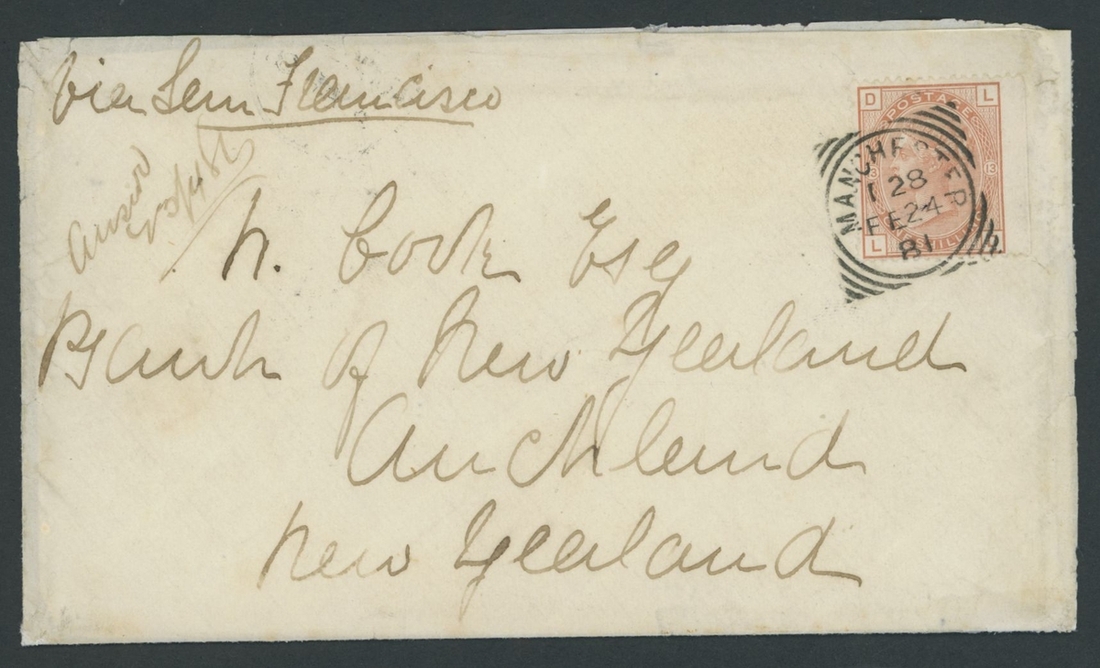 Via San Francisco
D L
POSTAGE
13 13
L
MANCHESTER
1 28
FE 24
81
N. Cook Esq
Bank of New Zealand
Auckland
New Zealand